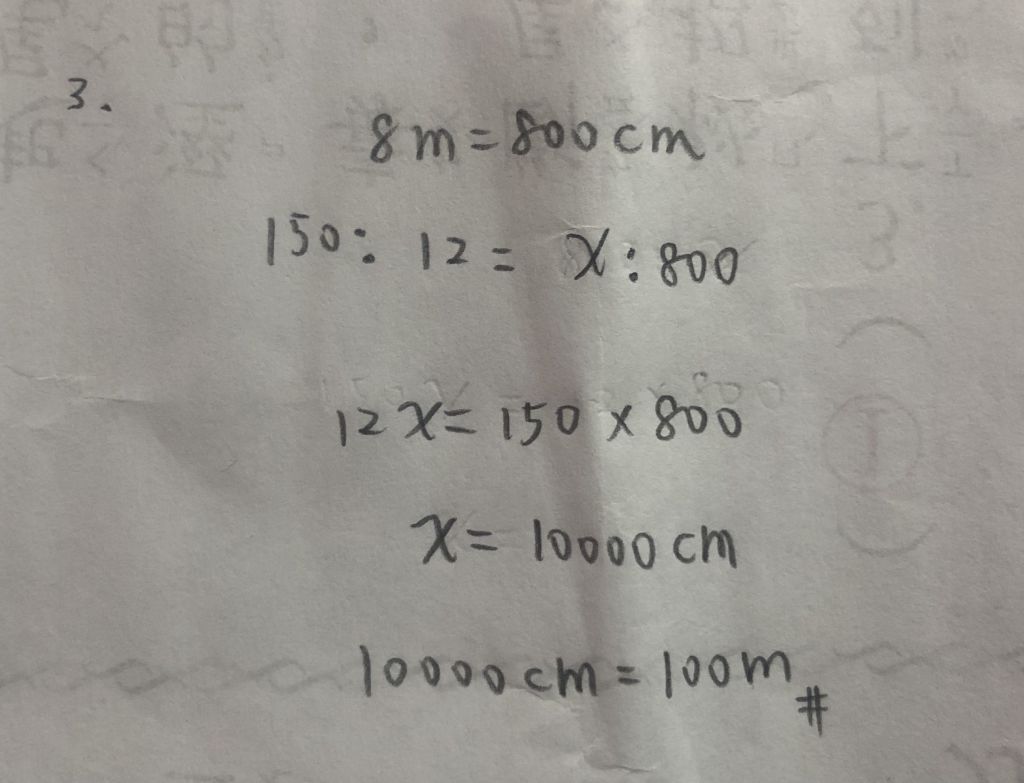 3.
8m=800cm
150: 12= x:800
12x=150×800
x=10000cm
10000cm=100m#